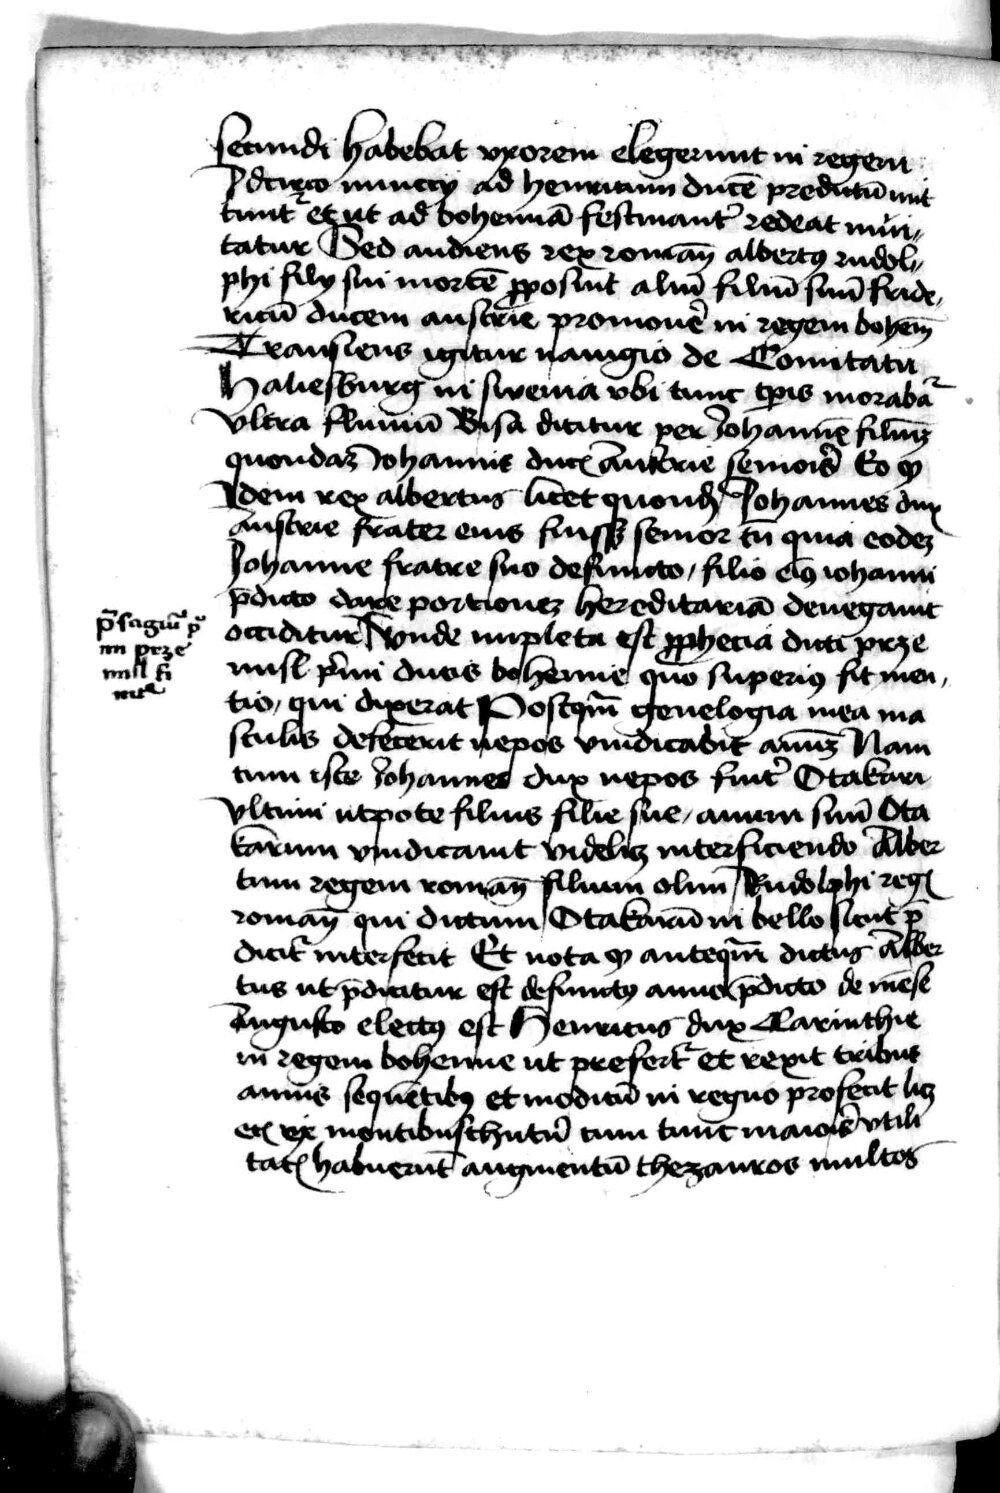 secundi habebat vxorem elegerunt in regem
Idcirco nuncij ad henricum ducē predictū mit
tuntr et ut ad bohemiā festinantr redeat invi„
tatur Sed audiens rex romanꝝ albertꝰ rudol„
phi filij sui mortē ꝓposuit aliū filiū suū fride„
ricū ducem austrie promovēe in regem bohem̄
Transiens igitur nauigio de Comitatu
Habesburg in sweuia vbi tunc tp̄is morabar
vltra fluuiū Risa dicitur per Johannē filiuꝫ
quondaꝫ Johannis ducꝭ austrie semioris Eo ꝙ
Idem rex albertus licet quondā Johannes dux
austrie frater eius fuissꝫ senior tn̄ quia eodeꝫ
Johanne fratre suo defuncto / filio eiꝰ iohanni
p̄dicto dare portioneꝫ hereditariā denegauit
occiditur Vnde impleta est ꝓphecia dicti prze
misl p̄mi ducis bohemie quo superiꝰ fit men„
tio / qui dixerat Postqm̄ genelogia mea ma
sculis defecerit nepos vindicabit auuꝫ Nam
cum iste Johannes dux nepos fuitr Otakari
vltimi utpote filius filie sue / auum suū Ota
karum vindicauit videlicꝫ interficiendo Alber
tum regem romanꝝ filium olim Rudolphi regꝭ
romanꝝ qui dictum Otakarū in bello sicut p̄
dicitr interfecit Et nota ꝙ anteqm̄ dictus Alber
tus ut p̄dicitur est defunctꝰ anno p̄dicto de mēse
augusto electꝰ est Henricus dux Carinthie
in regem bohemie ut prefertr et rexit tribus
annis sequētibꝰ et modicū in regno profecit licꝫ
etꝭ ex montibus chutn̄ cum tunc maioris vtili
tatꝭ habuerūt augmentū thezauros multos
p̄sagiū p̄
mi prze
misl fi
nitr